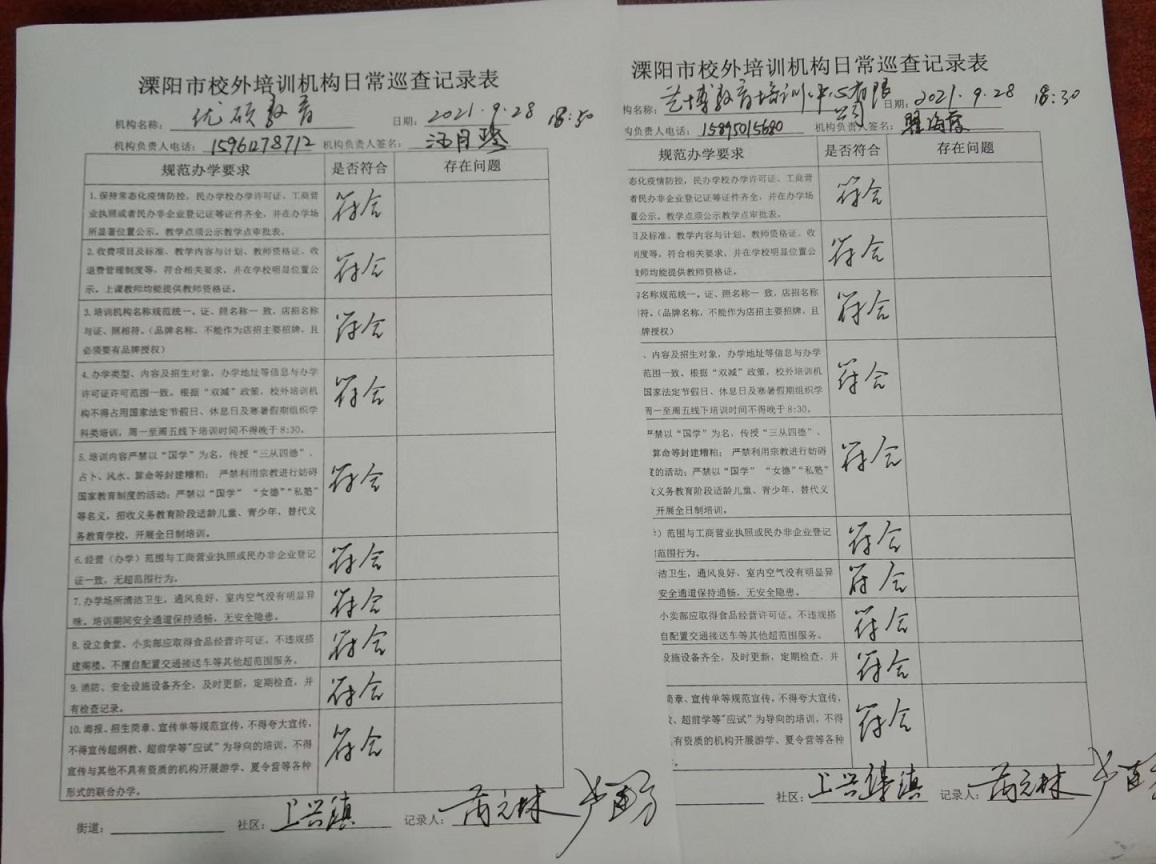 溧阳市校外培训机构日常巡查记录表
机构名称: 优硕教育 日期: 2021.9.28 18:50
机构负责人电话: 1596278712 机构负责人签名:
规范办学要求 是否符合 存在问题
1.保持常态化疫情防控,民办学校办学许可证、工商营
业执照或者民办非企业登记证等证件齐全,并在办学场
所显著位置公示。教学点须公示教学点审批表。
符合
2.收费项目及标准、教学内容与计划、教师资格证、收
退费管理制度等,符合相关要求,并在学校明显位置公
示。上课教师均能提供教师资格证。
符合
3.培训机构名称规范统一。证、照名称一致,店招名称
与证、照相符。(品牌名称,不能作为店招主要招牌,且
必须要有品牌授权)
符合
4.办学类型、内容及招生对象,办学地址等信息与办学
许可证许可范围一致。根据“双减”政策,校外培训机
构不得占用国家法定节假日、休息日及寒暑假期组织学
科类培训,周一至周五线下培训时间不得晚于8:30。
符合
5.培训内容严禁以“国学”为名,传授“三从四德”、
占卜、风水、算命等封建糟粕; 严禁利用宗教进行妨碍
国家教育制度的活动;严禁以“国学” “女德”“私塾”
等名义,招收义务教育阶段适龄儿童、青少年,替代义
务教育学校,开展全日制培训。
符合
6.经营(办学)范围与工商营业执照或民办非企业登记
证一致,无超范围行为。
符合
7.办学场所清洁卫生,通风良好,室内空气没有明显异
味。培训期间安全通道保持通畅,无安全隐患。
符合
8.设立食堂、小卖部应取得食品经营许可证,不违规搭
建阁楼、不擅自配置交通接送车等其他超范围服务。
符合
9.消防、安全设施设备齐全,及时更新,定期检查,并
有检查记录。
符合
10.海报、招生简章、宣传单等规范宣传,不得夸大宣传,
不得宣传超纲教、超前学等“应试”为导向的培训,不得
宣传与其他不具有资质的机构开展游学、夏令营等各种
形式的联合办学。
符合
街道: 社区: 上兴镇 记录人:
溧阳市校外培训机构日常巡查记录表
构名称: 艺博教育培训中心有限
公司
日期: 2021.9.28 18:30
构负责人电话: 15895015680 机构负责人签名:
规范办学要求 是否符合 存在问题
态化疫情防控,民办学校办学许可证、工商营
者民办非企业登记证等证件齐全,并在办学场
置公示。教学点须公示教学点审批表。
符合
目及标准、教学内容与计划、教师资格证、收
制度等,符合相关要求,并在学校明显位置公
教师均能提供教师资格证。
符合
名称规范统一。证、照名称一致,店招名称
符。(品牌名称,不能作为店招主要招牌,且
牌授权)
符合
、内容及招生对象,办学地址等信息与办学
范围一致。根据“双减”政策,校外培训机
国家法定节假日、休息日及寒暑假期组织学
周一至周五线下培训时间不得晚于8:30。
符合
严禁以“国学”为名,传授“三从四德”、
算命等封建糟粕; 严禁利用宗教进行妨碍
的活动;严禁以“国学” “女德”“私塾”
义务教育阶段适龄儿童、青少年,替代义
开展全日制培训。
符合
)范围与工商营业执照或民办非企业登记
范围行为。
符合
洁卫生,通风良好,室内空气没有明显异
安全通道保持通畅,无安全隐患。
符合
小卖部应取得食品经营许可证,不违规搭
自配置交通接送车等其他超范围服务。
符合
设施设备齐全,及时更新,定期检查,并
符合
简章、宣传单等规范宣传,不得夸大宣传,
、超前学等“应试”为导向的培训,不得
有资质的机构开展游学、夏令营等各种
符合
社区: 上兴镇 记录人: